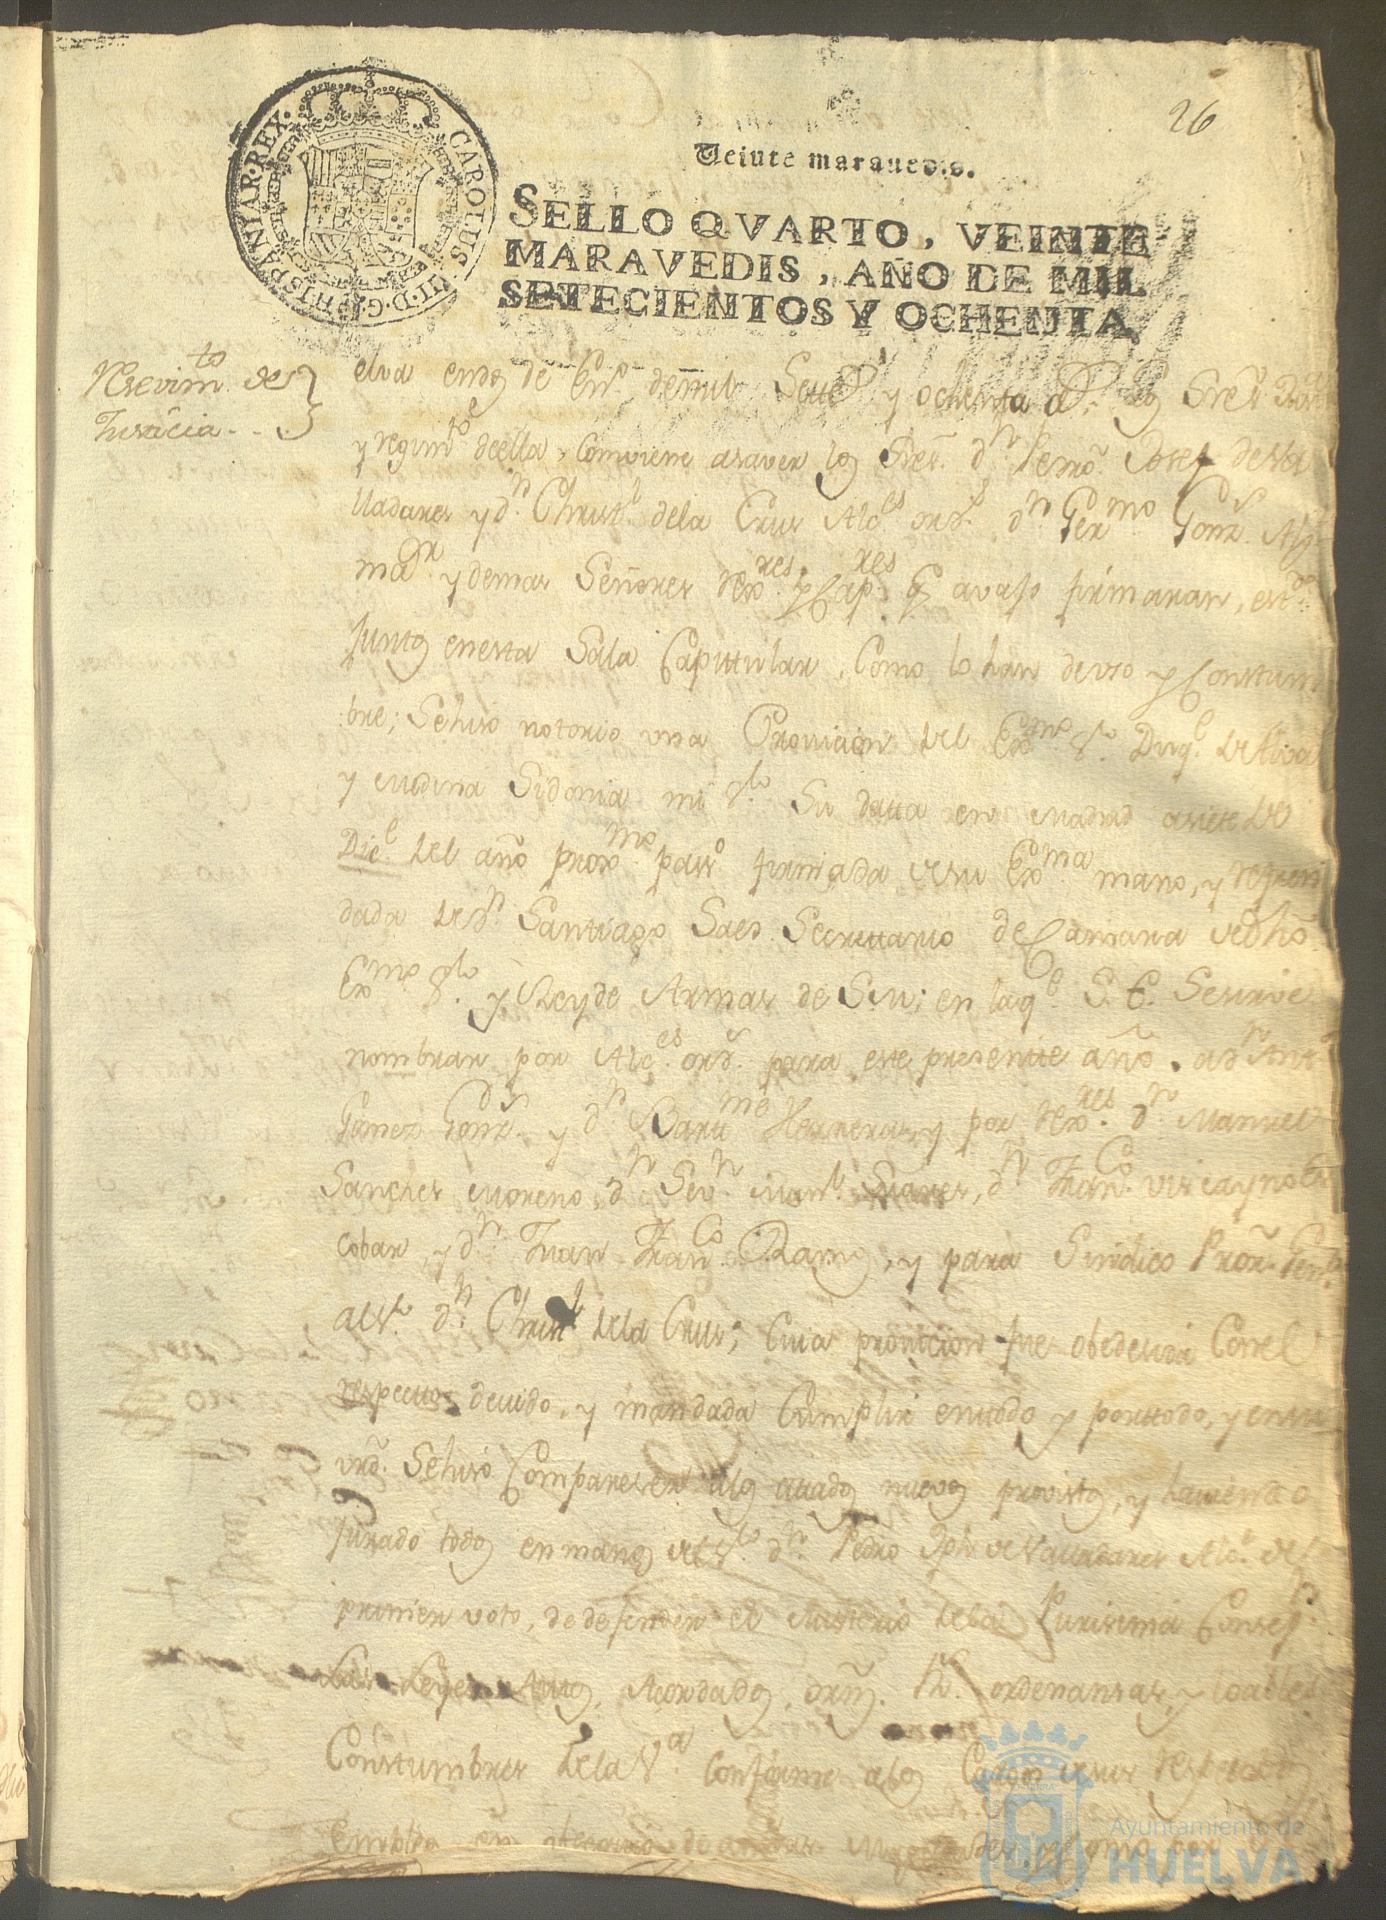 26
CAROLUS III D. G. HISPANIAR. REX.
Veinte marauedis.
SELLO QVARTO, VEINTE
MARAVEDIS, AÑO DE MIL
SETECIENTOS Y OCHENTA
Resevim.to de
Justicia
elva en dos de En.o de mil Settez.s y ochenta a.s los Sres.
y regim.to de ella, combiene asaver los Sres. d.n Pedro Josef de Va
lladares y d.n Christ.l de la Crus Alc.es ord.s d.n Ger.mo Gonz.s Alg.l
ma.or y demas Señores Rex.res y Cap.res q avajo firmaran, est.do
juntos en esta Sala Capittular, como lo han de uso y Constum
bre; Se hiso notorio una Provicion del Exc.mo S.r Duq.e de Alva
y Medina Sidonia mi S.r Su datta en Madrid a siete de
Dic.e del año prox.mo pas.o firmada de su Exc.ma mano, y refren
dada de d.n Santiago Saes Secrettario de Camara de dho
Exc.mo S.r y Rey de Armas de S.M.; en la q.e S. E. Se sirve
nombrar por Alc.es ord.s para este presentte año a d.n Ant.o
Gamez Gonz.s y d.n Bartt.me Herrera, y por Rex.res d.n Manuel
Sanches Moreno, d.n Sev.n Man.l Suares, d.n Fran.co Viscayno Es
cobar, y d.n Juan Fran.co Ramos, y para Sindico Pror. Gen.l
al S.r d.n Christ.l de la Crus; Cuia provicion fue obedesida Con el
respecto devido, y mandada Cumplir en ttodo y por ttodo, y en su
vrd. Se hiso Compareser a los cittados nuevos provistos, y haviendo
jurado todos en manos del S.r d.n Pedro Jph de Valladares Alc.e de
primer voto, de defender el Misterio de la Purisima Consep.n
Las Leyes Autos Acordados, orn.s R.s ordenansas, y loables
Constumbres de la V.a conforme a los Cargos de sus respectivos
empleos en
Ayuntamiento de
HUELVA